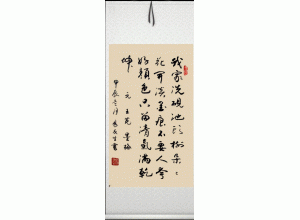 我家洗硯池頭樹朵々
花開淡墨痕不要人夸
好顏色只留清氣滿乾
坤 元 王冕 墨梅
甲辰 書